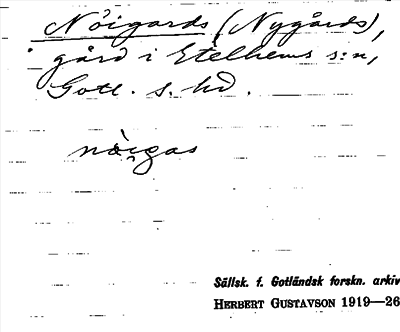 Nôigards (Nygårds),
gård i Etelhems s:n,
Gotl. S. hd.
Sällsk. f. Gotländsk forskn. arkiv
HERBERT GUSTAVSON 1919—26